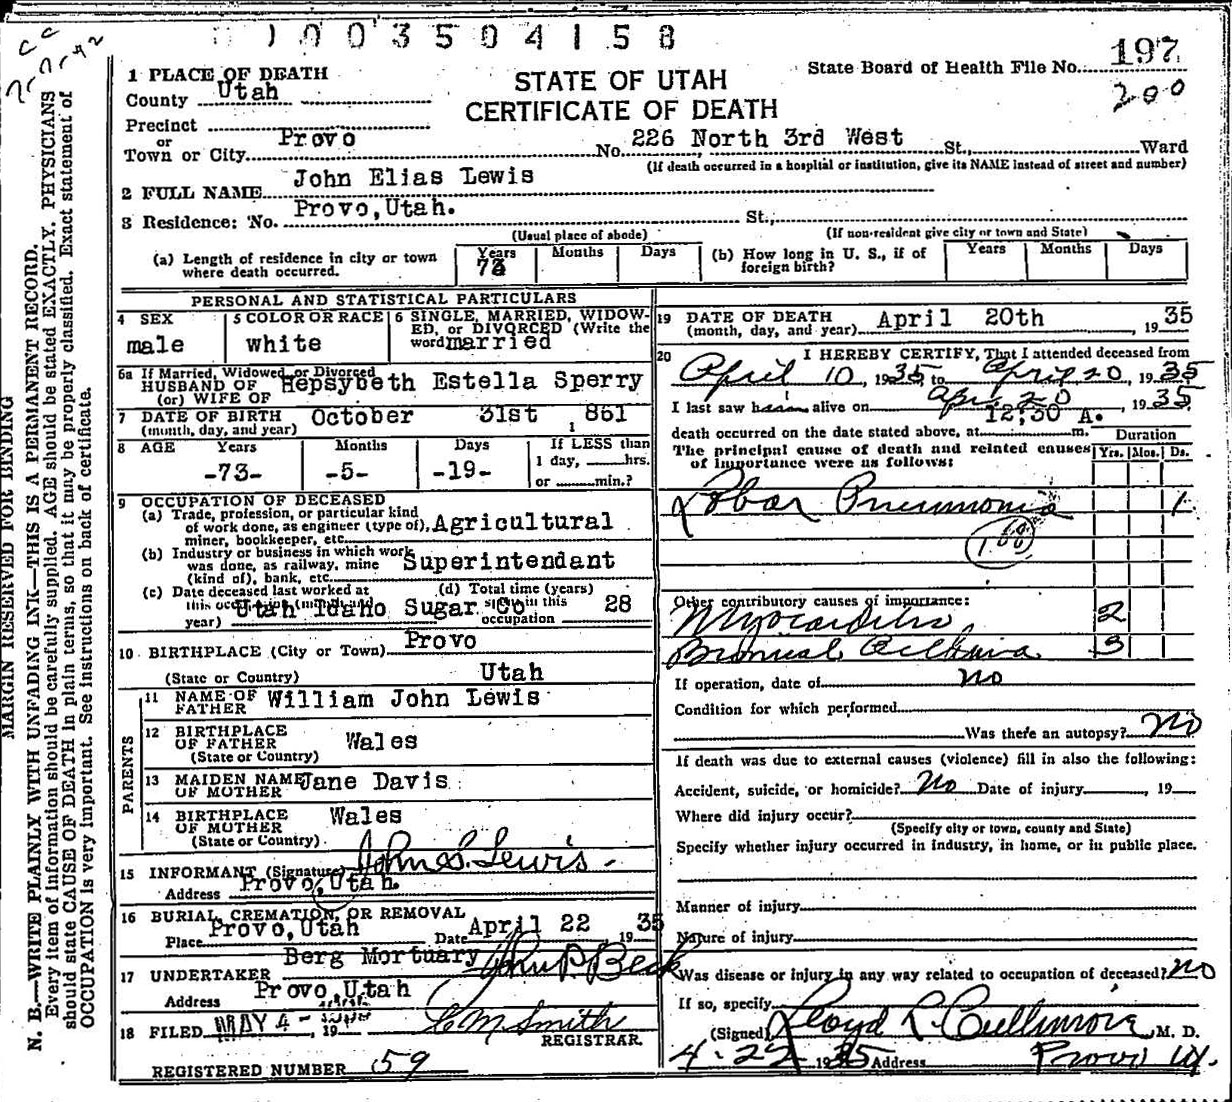 1003504158
STATE OF UTAH
CERTIFICATE OF DEATH
State Board of Health File No. 197
200
1 PLACE OF DEATH
County Utah
Precinct
or
Town or City Provo No. 226 North 3rd West St., Ward
(If death occurred in a hospital or institution, give its NAME instead of street and number)
2 FULL NAME John Elias Lewis
3 Residence: No. Provo, Utah. St.,
(Usual place of abode) (If non-resident give city or town and State)
(a) Length of residence in city or town where death occurred. Years 73 Months Days (b) How long in U. S., if of foreign birth? Years Months Days
PERSONAL AND STATISTICAL PARTICULARS
4 SEX male
5 COLOR OR RACE white
6 SINGLE, MARRIED, WIDOW-
ED, or DIVORCED (Write the
word married
6a If Married, Widowed, or Divorced
HUSBAND OF Hepsybeth Estella Sperry
(or) WIFE OF
7 DATE OF BIRTH October 31st 1861
(month, day, and year)
8 AGE Years -73- Months -5- Days -19- If LESS than
1 day, hrs.
or min.?
9 OCCUPATION OF DECEASED
(a) Trade, profession, or particular kind
of work done, as engineer (type of), Agricultural
miner, bookkeeper, etc.
(b) Industry or business in which work
was done, as railway, mine Superintendant
(kind of), bank, etc.
(c) Date deceased last worked at (d) Total time (years)
this occupation (month and Utah Idaho Sugar Co in this 28
year) occupation
10 BIRTHPLACE (City or Town) Provo
(State or Country) Utah
PARENTS
11 NAME OF FATHER William John Lewis
12 BIRTHPLACE OF FATHER Wales
(State or Country)
13 MAIDEN NAME OF MOTHER Jane Davis
14 BIRTHPLACE OF MOTHER Wales
(State or Country)
15 INFORMANT (Signature) John S. Lewis
Address Provo, Utah.
16 BURIAL, CREMATION, OR REMOVAL
Place Provo, Utah Date April 22, 1935
17 UNDERTAKER Berg Mortuary John P. Beck
Address Provo Utah
18 FILED MAY 4 - , 19 C M Smith
REGISTRAR.
REGISTERED NUMBER 59
19 DATE OF DEATH April 20th, 1935
(month, day, and year)
20 I HEREBY CERTIFY, That I attended deceased from
April 10, 1935, to April 20, 1935
I last saw him alive on Apr 20, 1935
death occurred on the date stated above, at 12;30 A. m.
The principal cause of death and related causes
of importance were as follows:
Duration
Yrs. Mos. Ds.
Lobar Pneumonia 1
108
Other contributory causes of importance:
Myocarditis 2
Bronchial Asthma 3
If operation, date of no
Condition for which performed
Was there an autopsy? no
If death was due to external causes (violence) fill in also the following:
Accident, suicide, or homicide? No Date of injury , 19
Where did injury occur?
(Specify city or town, county and State)
Specify whether injury occurred in industry, in home, or in public place.
Manner of injury
Nature of injury
Was disease or injury in any way related to occupation of deceased? no
If so, specify
(Signed) Lloyd L. Cullimore M. D.
4-22-1935 Address Provo Ut.
MARGIN RESERVED FOR BINDING
N. B.—WRITE PLAINLY WITH UNFADING INK—THIS IS A PERMANENT RECORD.
Every item of information should be carefully supplied. AGE should be stated EXACTLY. PHYSICIANS
should state CAUSE OF DEATH in plain terms, so that it may be properly classified. Exact statement of
OCCUPATION is very important. See instructions on back of certificate.